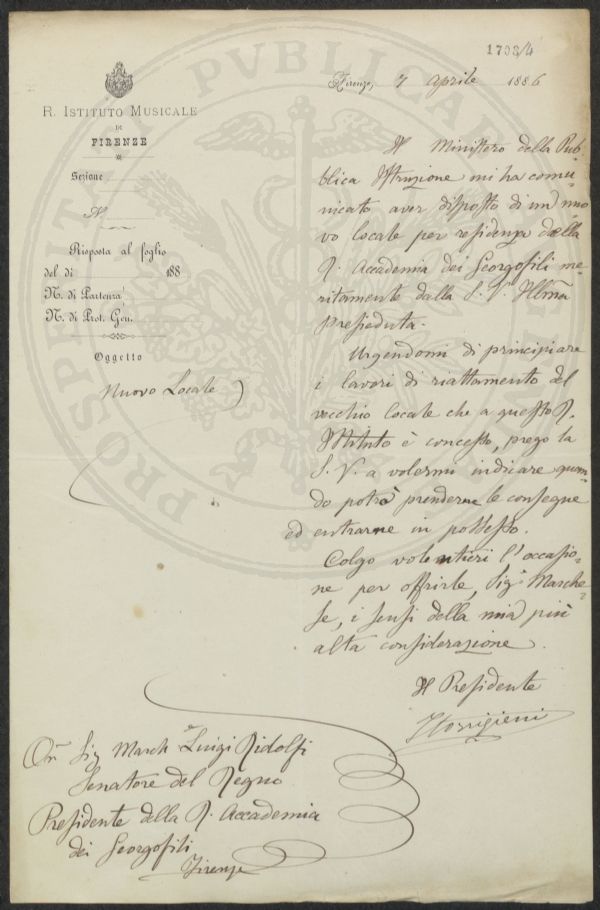 1793/4
R. ISTITUTO MUSICALE
DI
FIRENZE
Sezione
N.
Risposta al foglio
del dì 188
N. di Partenza
N. di Prot. Gen.
Oggetto
Nuovo Locale
Firenze, 7 Aprile 1886
Il Ministero della Pub-
blica Istruzione mi ha comu-
nicato aver disposto di un nuo-
vo locale per residenza della
R. Accademia dei Georgofili me-
ritamente dalla S. V. Illma
presieduta.
Urgendomi di principiare
i lavori di riattamento del
vecchio locale che a questo R.
Istituto è concesso, prego la
S. V. a volermi indicare quan-
do potrò prenderne le consegne
ed entrarne in possesso.
Colgo volentieri l'occasio-
ne per offrirle, Sigr Marche-
se, i sensi della mia più
alta considerazione.
Il Presidente
Onr Sig March Luigi Ridolfi
Senatore del Regno
Presidente della R. Accademia
dei Georgofili
Firenze
PROSPERITATI PVBLICAE